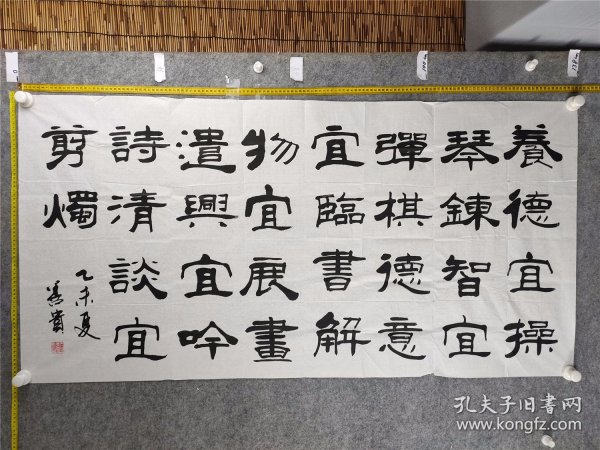 養德宜操
琴鍊智宜
彈棋德意
宜臨書解
物宜展畫
遣興宜吟
詩清談宜
剪燭
乙未夏
孔夫子旧書网
www.kongfz.com